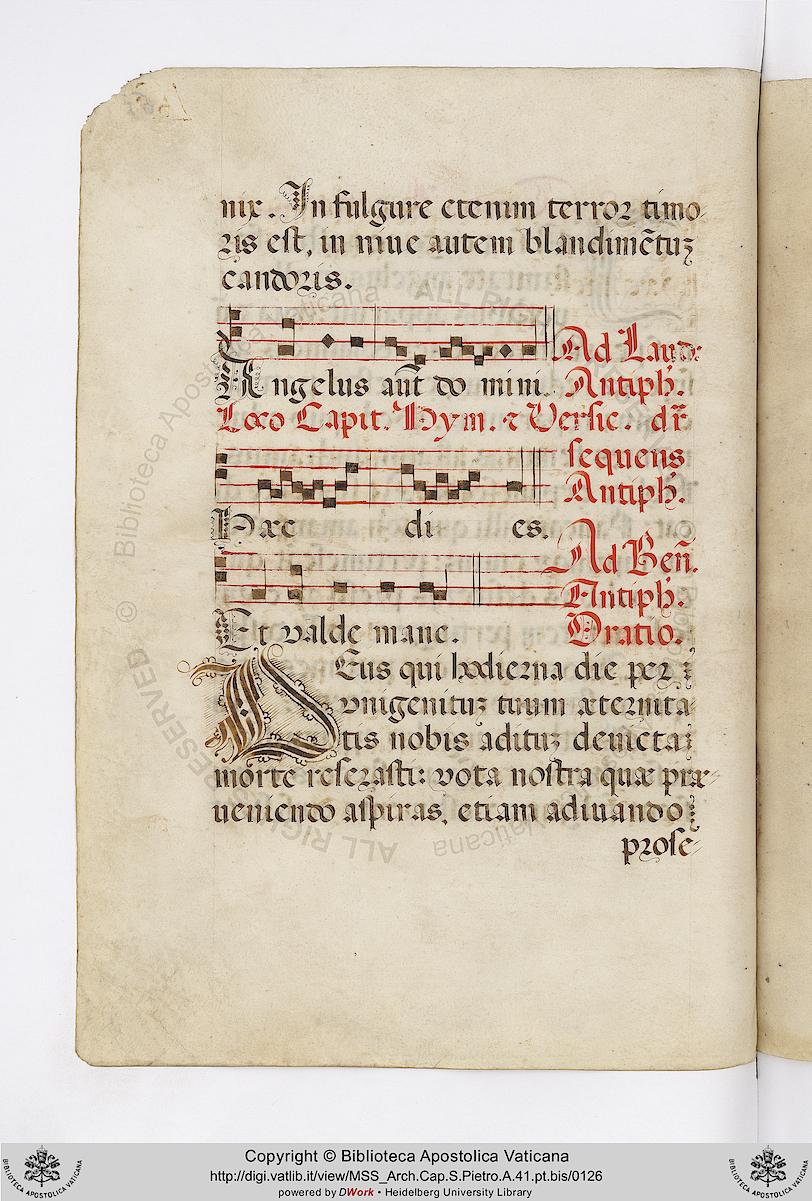 nix. In fulgure etenim terror timo-
ris est, in niue autem blandimẽtuʒ
candoris.
Ad Laud:
Angelus aũt do mini. Antiph.
Loco Capit. Hym. & Versic. dr̃
sequens
Antiph.
Hæc di es.
Ad Beñ.
Antiph.
Et valde mane. Oratio.
Deus qui hodierna die per
vnigenituʒ tuum æternita
tis nobis adituʒ deuicta
morte reserasti: vota nostra quæ præ-
ueniendo aspiras, etiam adiuando
prose-
Copyright © Biblioteca Apostolica Vaticana
http://digi.vatlib.it/view/MSS_Arch.Cap.S.Pietro.A.41.pt.bis/0126
powered by DWork • Heidelberg University Library